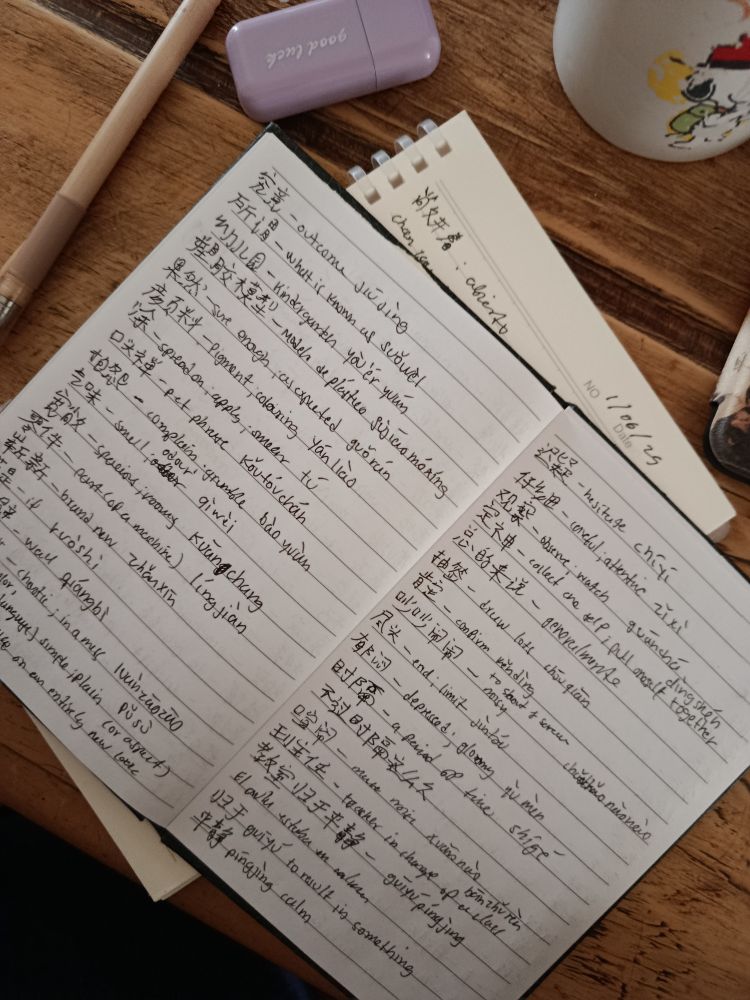 good luck
: abierto
NO
1/06/25
Date
究竟 - outcome jiūjìng
所谓 - what is known as suǒwèi
幼儿园 - kindergarten yòu ér yuán
塑胶模型 - Models de plástico sùjiāo móxíng
果然 - sure enough, as expected guǒrán
颜料 - pigment, colouring yánliào
涂 - spread on, apply, smear tú
口头禅 - pet phrase kǒutóuchán
抱怨 - complain, grumble bàoyuàn
气味 - smell, odour qìwèi
宽敞 - spacious, roomy kuānchang
零件 - part (of a machine) língjiàn
崭新 - brand new zhǎnxīn
- if ruòshì
- wall qiángbì
- chaotic; in a mess luànzāozāo
language) simple, plain pǔsù
on an entirely new look (or aspect)
迟疑 - hesitate chíyí
仔细 - careful, attentive zǐxì
观察 - observe, watch guānchá
定神 - collect one self, pull oneself together dìngshén
总的来说 - generalmente
抽签 - draw lots chōuqiān
肯定 - confirm
吵吵闹闹 - noisy, to shout & scream chǎochǎonàonào
尽头 - end, limit jìntóu
郁闷 - depressed, gloomy yùmèn
时隔 - a period of time shígé
不过时隔多么久
喧闹 - make noise xuānnào
班主任 - teacher in charge of a class bānzhǔrèn
教室归于平静 - guīyúpíngjìng
El aula estaba en calma
归于 guīyú to result in something
平静 píngjìng calm